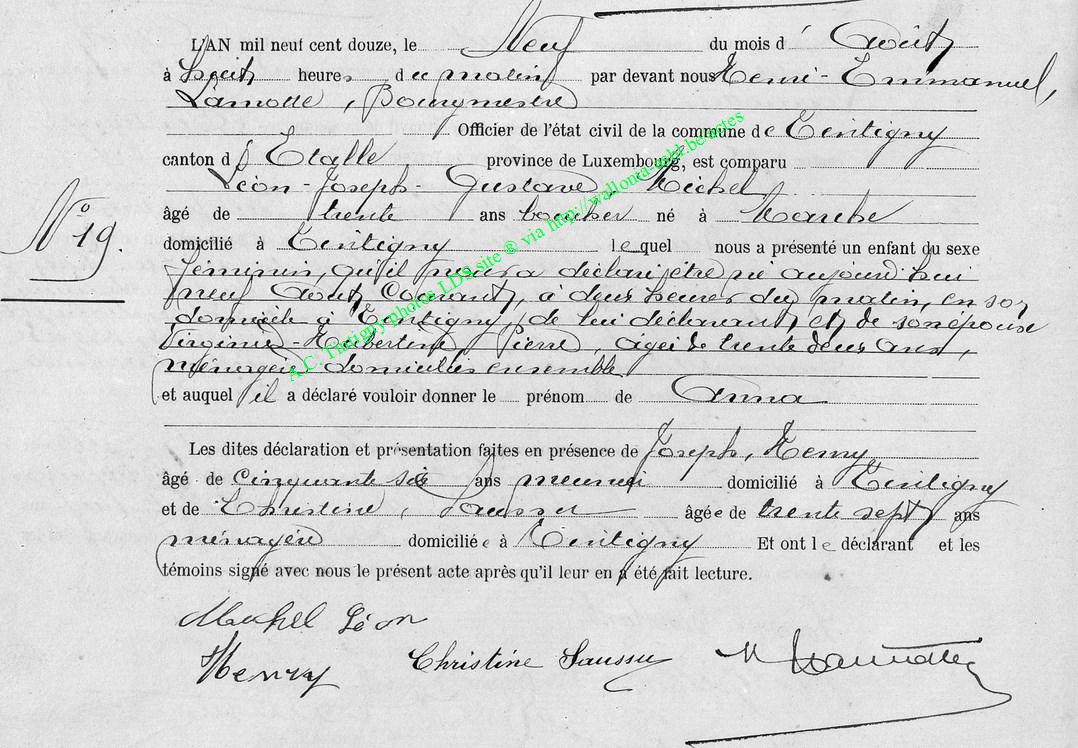 L'AN mil neuf cent douze, le Neuf du mois d' Août
à huit heures du matin par devant nous Henri-Emmanuel,
Lamotte, Bourgmestre
Officier de l'état civil de la commune de Tintigny
canton d' Etalle province de Luxembourg, est comparu
Léon-Joseph-Gustave Michel
âgé de trente ans boucher né à Marche
N° 19
domicilié à Tintigny lequel nous a présenté un enfant du sexe
féminin, qu'il nous a déclaré être né aujourd'hui
neuf Août courant, à deux heures du matin, en son
domicile à Tintigny, de lui déclarant et de son épouse
Virginie-Hubertine Pierre, agée de trente deux ans,
ménagère domiciliés ensemble
et auquel il a déclaré vouloir donner le prénom de Anna
Les dites déclaration et présentation faites en présence de Joseph, Henry
âgé de cinquante six ans meunier domicilié à Tintigny
et de Christine, Saussu âgée de trente sept ans
ménagère domiciliée à Tintigny Et ont le déclarant et les
témoins signé avec nous le présent acte après qu'il leur en a été fait lecture.
Michel Léon
Henry Christine Saussu H Lamotte
A.C. Tintigny photos LDS site ® via http://wallonia-asbl.be/actes